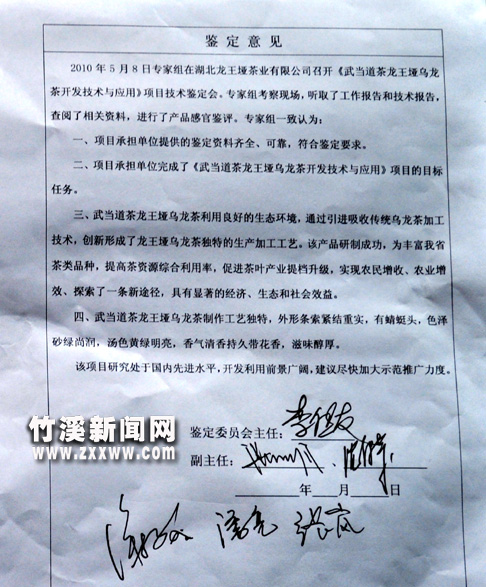 鉴定意见
2010年5月8日专家组在湖北龙王垭茶业有限公司召开《武当道茶龙王垭乌龙
茶开发技术与应用》项目技术鉴定会。专家组考察现场，听取了工作报告和技术报告，
查阅了相关资料，进行了产品感官鉴评。专家组一致认为：
一、项目承担单位提供的鉴定资料齐全、可靠，符合鉴定要求。
二、项目承担单位完成了《武当道茶龙王垭乌龙茶开发技术与应用》项目的目标
任务。
三、武当道茶龙王垭乌龙茶利用良好的生态环境，通过引进吸收传统乌龙茶加工
技术，创新形成了龙王垭乌龙茶独特的生产加工工艺。该产品研制成功，为丰富我省
茶类品种，提高茶资源综合利用率，促进茶叶产业提档升级，实现农民增收、农业增
效、探索了一条新途径，具有显著的经济、生态和社会效益。
四、武当道茶龙王垭乌龙茶制作工艺独特，外形条索紧结重实，有蜻蜓头，色泽
砂绿尚润，汤色黄绿明亮，香气清香持久带花香，滋味醇厚。
该项目研究处于国内先进水平，开发利用前景广阔，建议尽快加大示范推广力度。
鉴定委员会主任：
副主任：
年 月 日
竹溪新闻网
www.zxxww.com